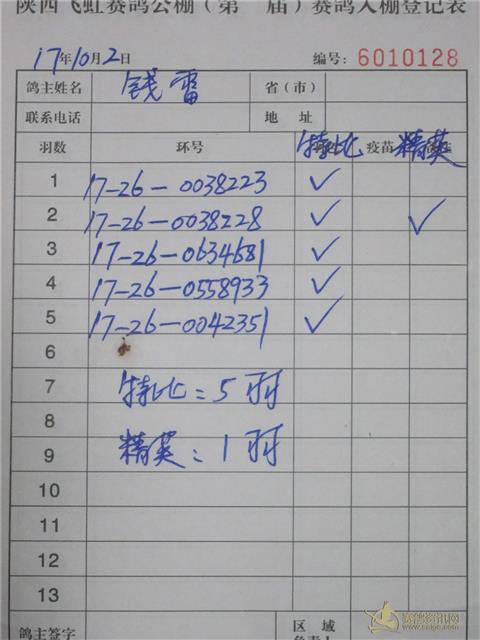 陕西飞虹赛鸽公棚(第 届)赛鸽入棚登记表
17年10月2日 编号:6010128
鸽主姓名 钱雷 省(市)
联系电话 地 址
羽数 环号 特比 疫苗 精英
1 17-26-0038223 ✓
2 17-26-0038228 ✓ ✓
3 17-26-0634681 ✓
4 17-26-0558933 ✓
5 17-26-0042351 ✓
6
7 特比:5羽
8
9 精英:1羽
10
11
12
13
鸽主签字 区 域